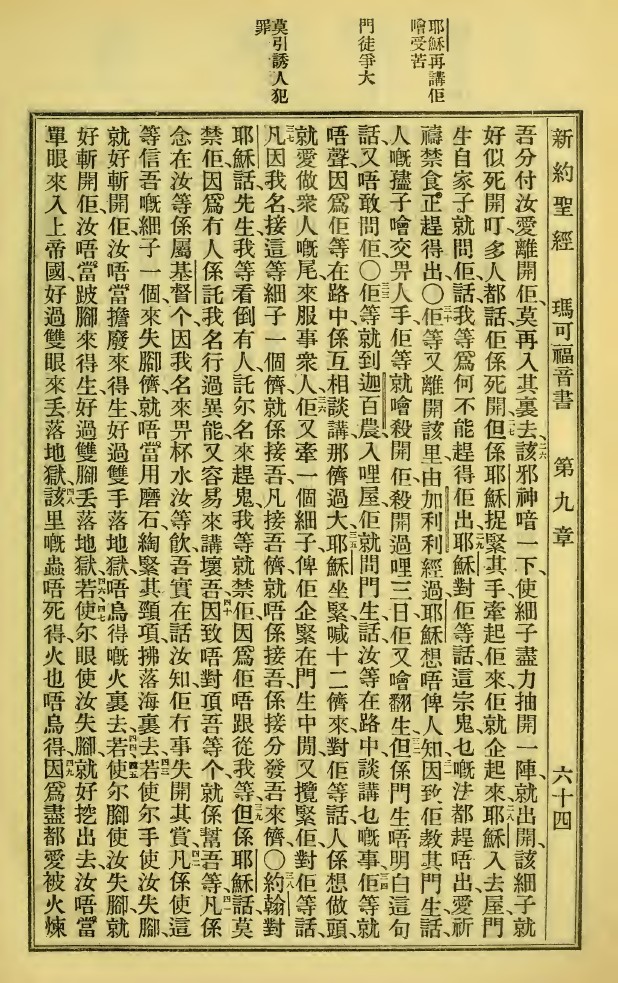 耶穌再講佢
噲受苦
門徒爭大
莫引誘人犯
罪
新約聖經 瑪可福音書 第九章 六十四
吾分付汝愛離開佢、莫再入其裏去、二六該邪神喑一下、使細子盡力抽開一陣、就出開、該細子就
好似死開叮多人都話佢係死開、二七但係耶穌捉緊其手牽起佢來佢就企起來、二八耶穌入去屋門
生自家子就問佢話我等爲何不能趕得佢出、二九耶穌對佢等話這宗鬼乜嘅法都趕唔出愛祈
禱禁食正趕得出○三十佢等又離開該里由加利利經過耶穌想唔俾人知、三一因致佢教其門生話、
人嘅㜽子噲交畀人手佢等就噲殺開佢殺開過哩三日佢又噲翻生、三二但係門生唔明白這句
話、又唔敢問佢○三三佢等就到迦百農、入哩屋佢就問門生話汝等在路中談講乜嘅事、三四佢等就
唔聲因爲佢等在路中係互相談講那儕過大、三五耶穌坐緊喊十二儕來對佢等話人係想做頭、
就愛做衆人嘅尾來服事衆人、三六佢又牽一個細子俾佢企緊在門生中間又攬緊佢對佢等話、
三七凡因我名接這等細子一個儕就係接吾凡接吾儕就唔係接吾係接分發吾來儕○三八約翰對
耶穌話先生我等看倒有人託尔名來趕鬼我等就禁佢因爲佢唔跟從我等、三九但係耶穌話莫
禁佢因爲冇人係託我名行過異能又容易來講壞吾、四十因致唔對頂吾等个就係幫吾等、四一凡係
念在汝等係屬基督个因我名來畀杯水汝等飲吾實在話汝知佢冇事失開其賞、四二凡係使這
等信吾嘅細子一個來失腳儕就唔當用磨石綯緊其頸項拂落海裏去、四三若使尔手使汝失腳、
就好斬開佢汝唔當擔廢來得生好過雙手落地獄、唔烏得嘅火裏去、四四、四五若使尔腳使汝失腳就
好斬開佢汝唔當跛腳來得生好過雙腳丢落地獄、四六、四七若使尔眼使汝失腳就好挖出去汝唔當
單眼來入上帝國好過雙眼來丢落地獄、四八該里嘅蟲唔死得火也唔烏得、四九因爲盡都愛被火煉